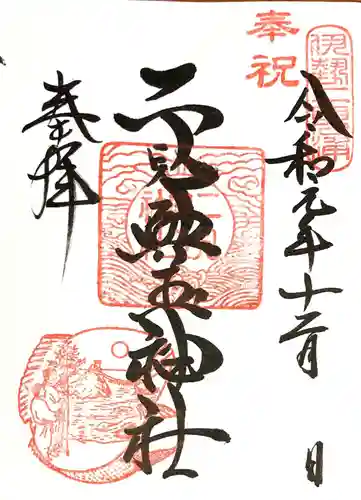 奉祝
伊勢二見浦
令和元年十一月 日
二見興玉神社
奉拝